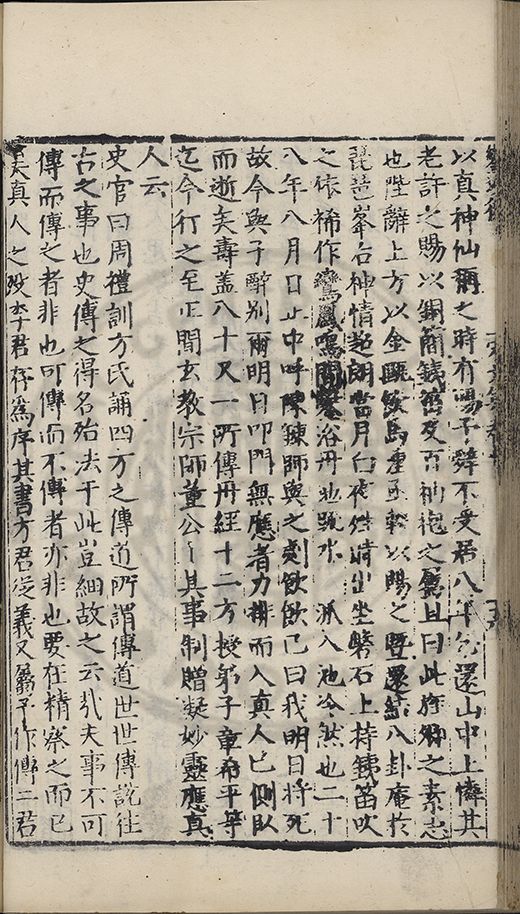 以真神仙稱之時有賜予辤不受居八年乞還山中上憐其
老許之賜以銅簡鐵笛及百衲袍之屬且曰此旌卿之素志
也陛辭上方以金甌飲馬湩并輅以賜之既還結八卦庵於
琵琶峯石神情超朗當月白夜往峰出坐磐石上持鐵笛吹
之依稀作鸞鳳鳴聞 浴丹池䟽水 派入池泠然也二十
八年八月日正中呼陳鍊師與之劇飲飲已曰我明日將死
故今與子辭別爾明日叩門無應者力排而入真人已側臥
而逝矣壽蓋八十又一所傳丹經十二方授弟子章希平等
迄今行之至正間玄教宗師董公上其事制贈凝妙靈應真
人云
史官曰周禮訓方氏誦四方之傳道所謂傳道世世傳說往
古之事也史傳之得名殆法于此豈細故之云乎哉夫事不可
傳而傳之者非也可傳而不傳者亦非也要在精察之而已
莫真人之歿李君存為序其書方君從義又 予作傳二君